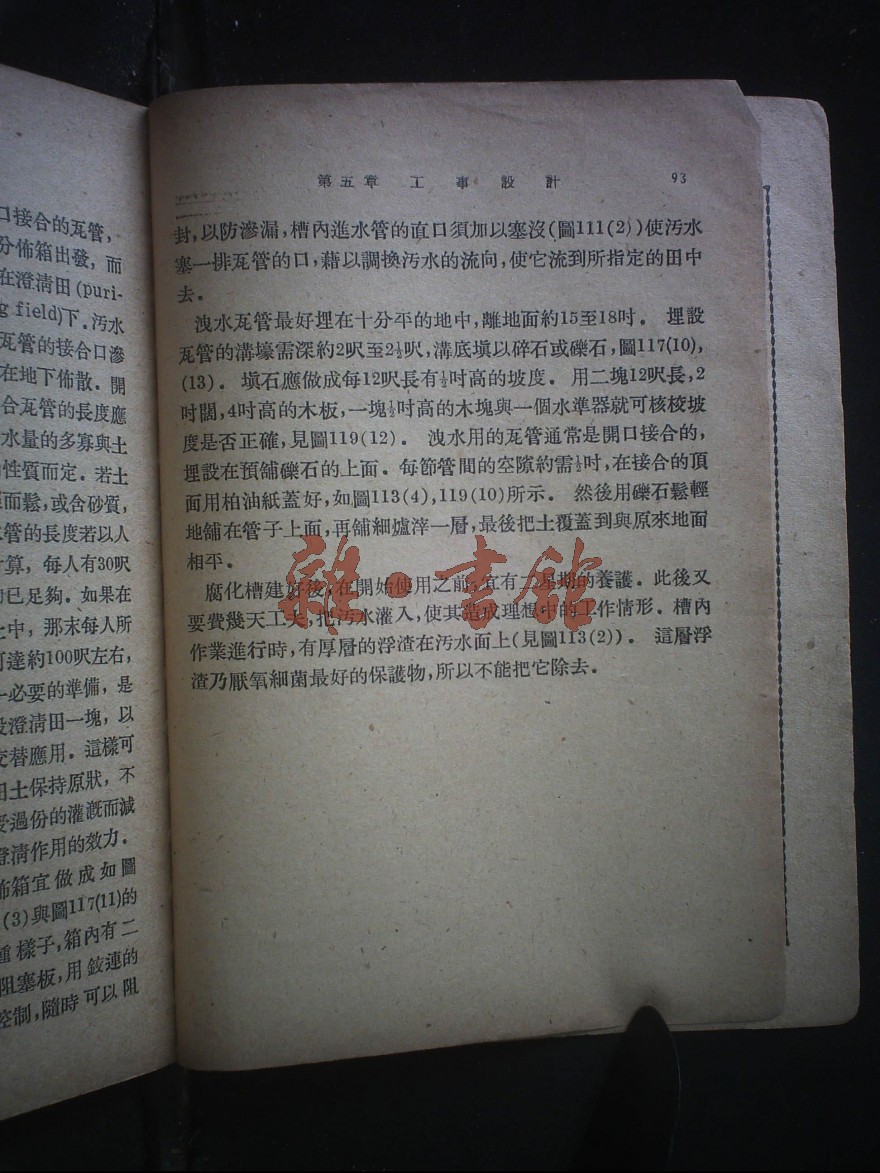 口接合的瓦管,
分佈箱出發, 而
在澄淸田 (puri-
g field)下. 汚水
瓦管的接合口滲
在地下佈散. 開
合瓦管的長度應
水量的多寡與土
性質而定. 若土
而鬆, 或含砂質,
水管的長度若以人
計算, 每人有30呎
已足夠. 如果在
土中, 那末每人所
可達約100呎左右,
必要的準備, 是
設澄淸田一塊, 以
交替應用. 這樣可
田土保持原狀, 不
受過份的灌漑而減
澄淸作用的效力.
佈箱宜做成如圖
(3)與圖117(11)的
種樣子, 箱內有二
阻塞板, 用鉸連的
控制, 隨時可以阻
第五章 工事設計 93
封, 以防滲漏, 槽內進水管的直口須加以塞沒(圖111(2))使汚水
塞一排瓦管的口, 藉以調換汚水的流向, 使它流到所指定的田中
去.
洩水瓦管最好埋在十分平的地中, 離地面約15至18吋. 埋設
瓦管的溝壕需深約2呎至2½呎, 溝底塡以碎石或礫石, 圖117(10),
(13). 塡石應做成每12呎長有½吋高的坡度. 用二塊12呎長, 2
吋闊, 4吋高的木板, 一塊½吋高的木塊與一個水準器就可核校坡
度是否正確, 見圖119(12). 洩水用的瓦管通常是開口接合的,
埋設在預舖礫石的上面. 每節管間的空隙約需½吋, 在接合的頂
面用柏油紙蓋好, 如圖113(4), 119(10)所示. 然後用礫石鬆輕
地舖在管子上面, 再舖細爐滓一層, 最後把土覆蓋到與原來地面
相平.
腐化槽建好後, 在開始使用之前, 宜有二星期的養護. 此後又
要費幾天工夫, 把汚水灌入, 使其造成理想中的工作情形. 槽內
作業進行時, 有厚層的浮渣在汚水面上(見圖113(2)). 這層浮
渣乃厭氧細菌最好的保護物, 所以不能把它除去.
雜·書館